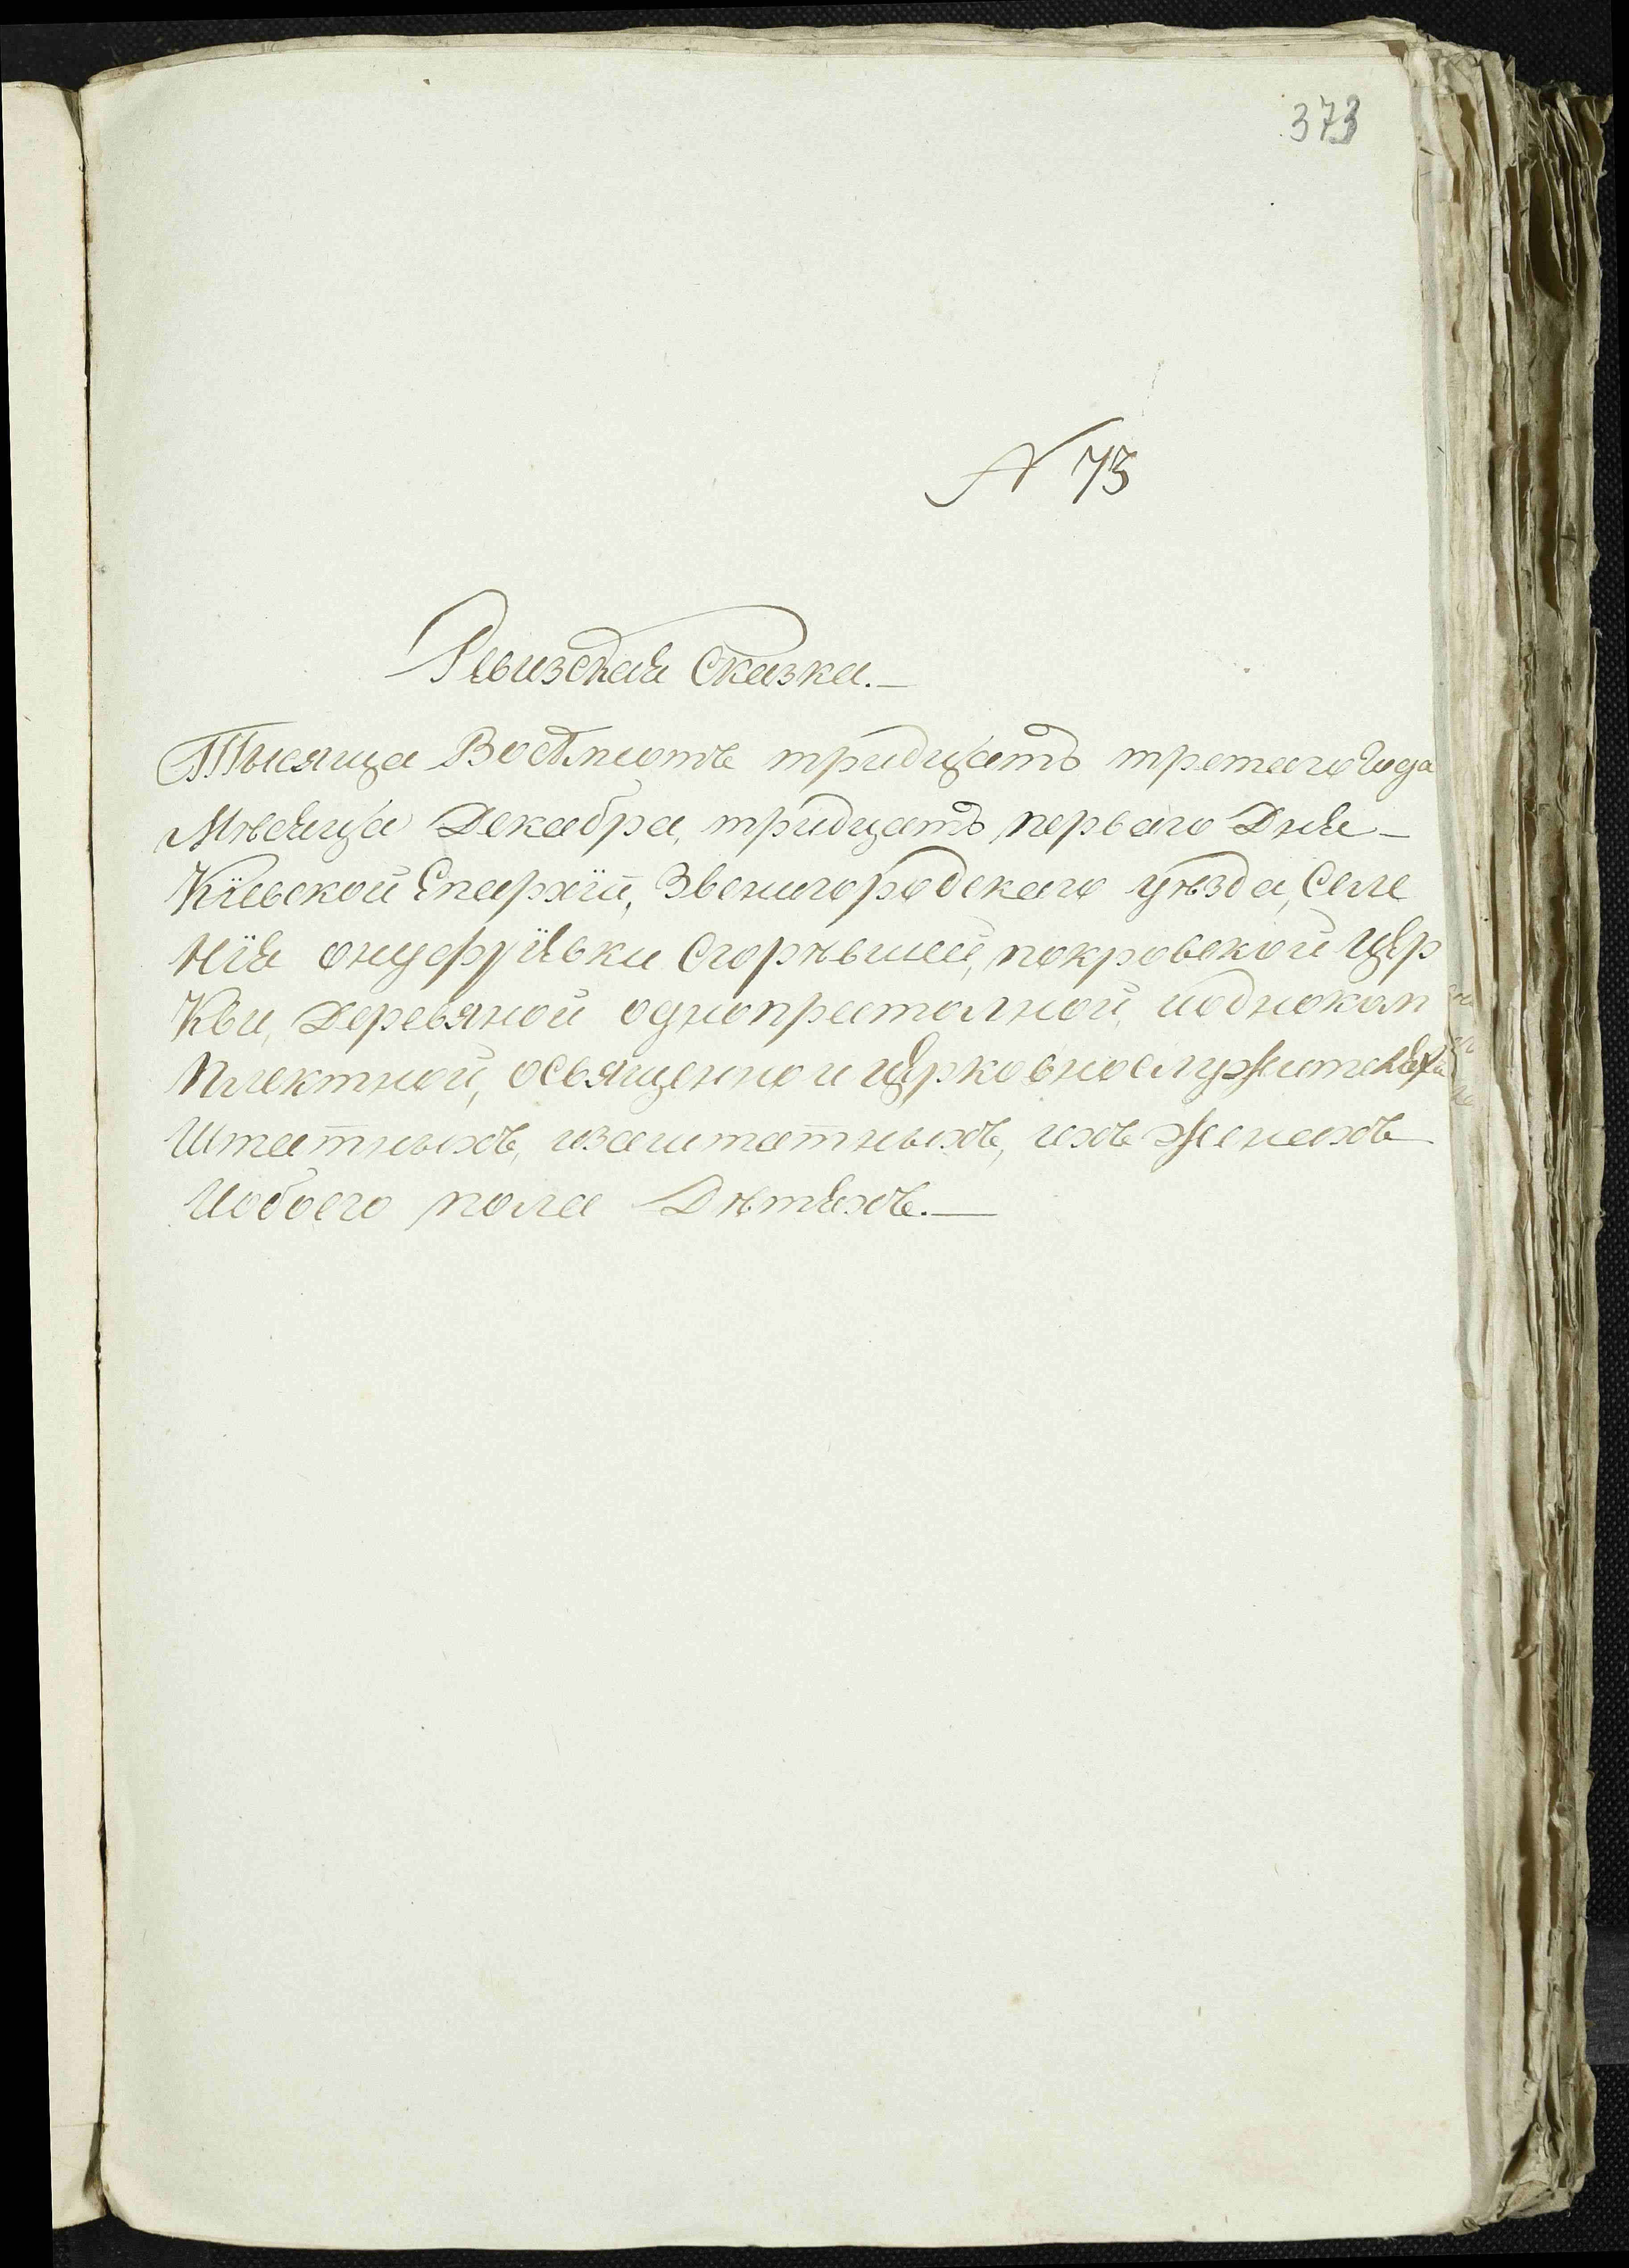 373
N 75
Ревизская Сказка.—
Тысяща Восѣмсотъ тридцать третаго Года
Мѣсяца Декабра, тридцать перваго Дня—
Кїевской Епархїи, Звенигородскаго уѣзда, Селе
Нїя онуфрїевки Сгорѣвшей, покровской Цер
Кви, Деревяной однопрестолной, иоднокom
Плектной, освященно и Церковнослужителяхъ
Штатныхъ, изаштатныхъ, ихъ женахъ
Иобоего пола Дѣтяхъ.—